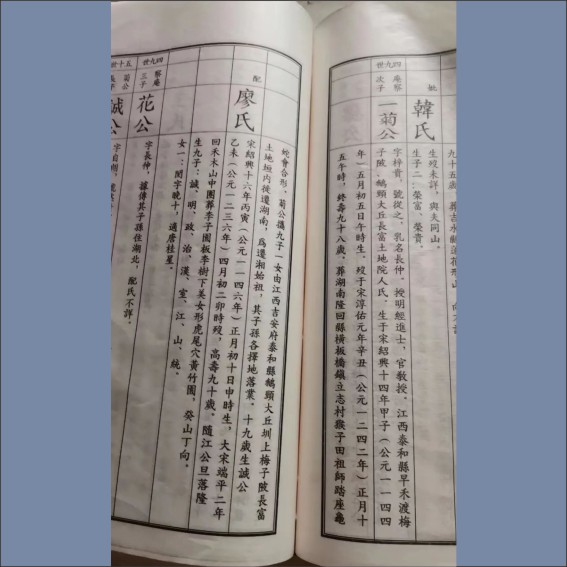 妣
韓氏
生歿未詳，與夫同山。
生子二：榮富、榮貴。
四九世
庵察
次子
一菊公
字梓貴，號從之，乳名長仲，授明經進士，官教授，江西泰和縣早禾渡梅
子陂、鵝頸大丘長富土地院人氏，生于宋紹興十四年甲子（公元一一四四
年）五月初五日午時生，歿于宋淳佑元年辛丑（公元一二四二年）正月十
五午時，終壽九十八歲，葬湖南隆回縣橫板橋鎮立志村猴子田祖師踏座龜
蛇會合形，菊公携九子一女由江西吉安府泰和縣鵝頸大丘圳上梅子陂長富
土地垣內後遷湖南，爲遷湘始祖，其子孫各擇地落業，十九歲生誠公
配
廖氏
宋紹興十六年丙寅（公元一一四六年）正月初十日申時生，大宋端平二年
乙未（公元一二三六年）四月初二卯時歿，高壽九十歲，隨江公旦落隆
回禾木山中團葬李子園板李樹下美女形虎尾穴黃竹園，癸山丁向。
生九子：誠、明、政、治、漢、室、江、山、統，
女一：閏字晚十，適唐桂星。
四九世
察庵
三子
花公
字長仲，據傳其子孫住湖北，配氏不詳。
五十世
菊公
長子
誠公